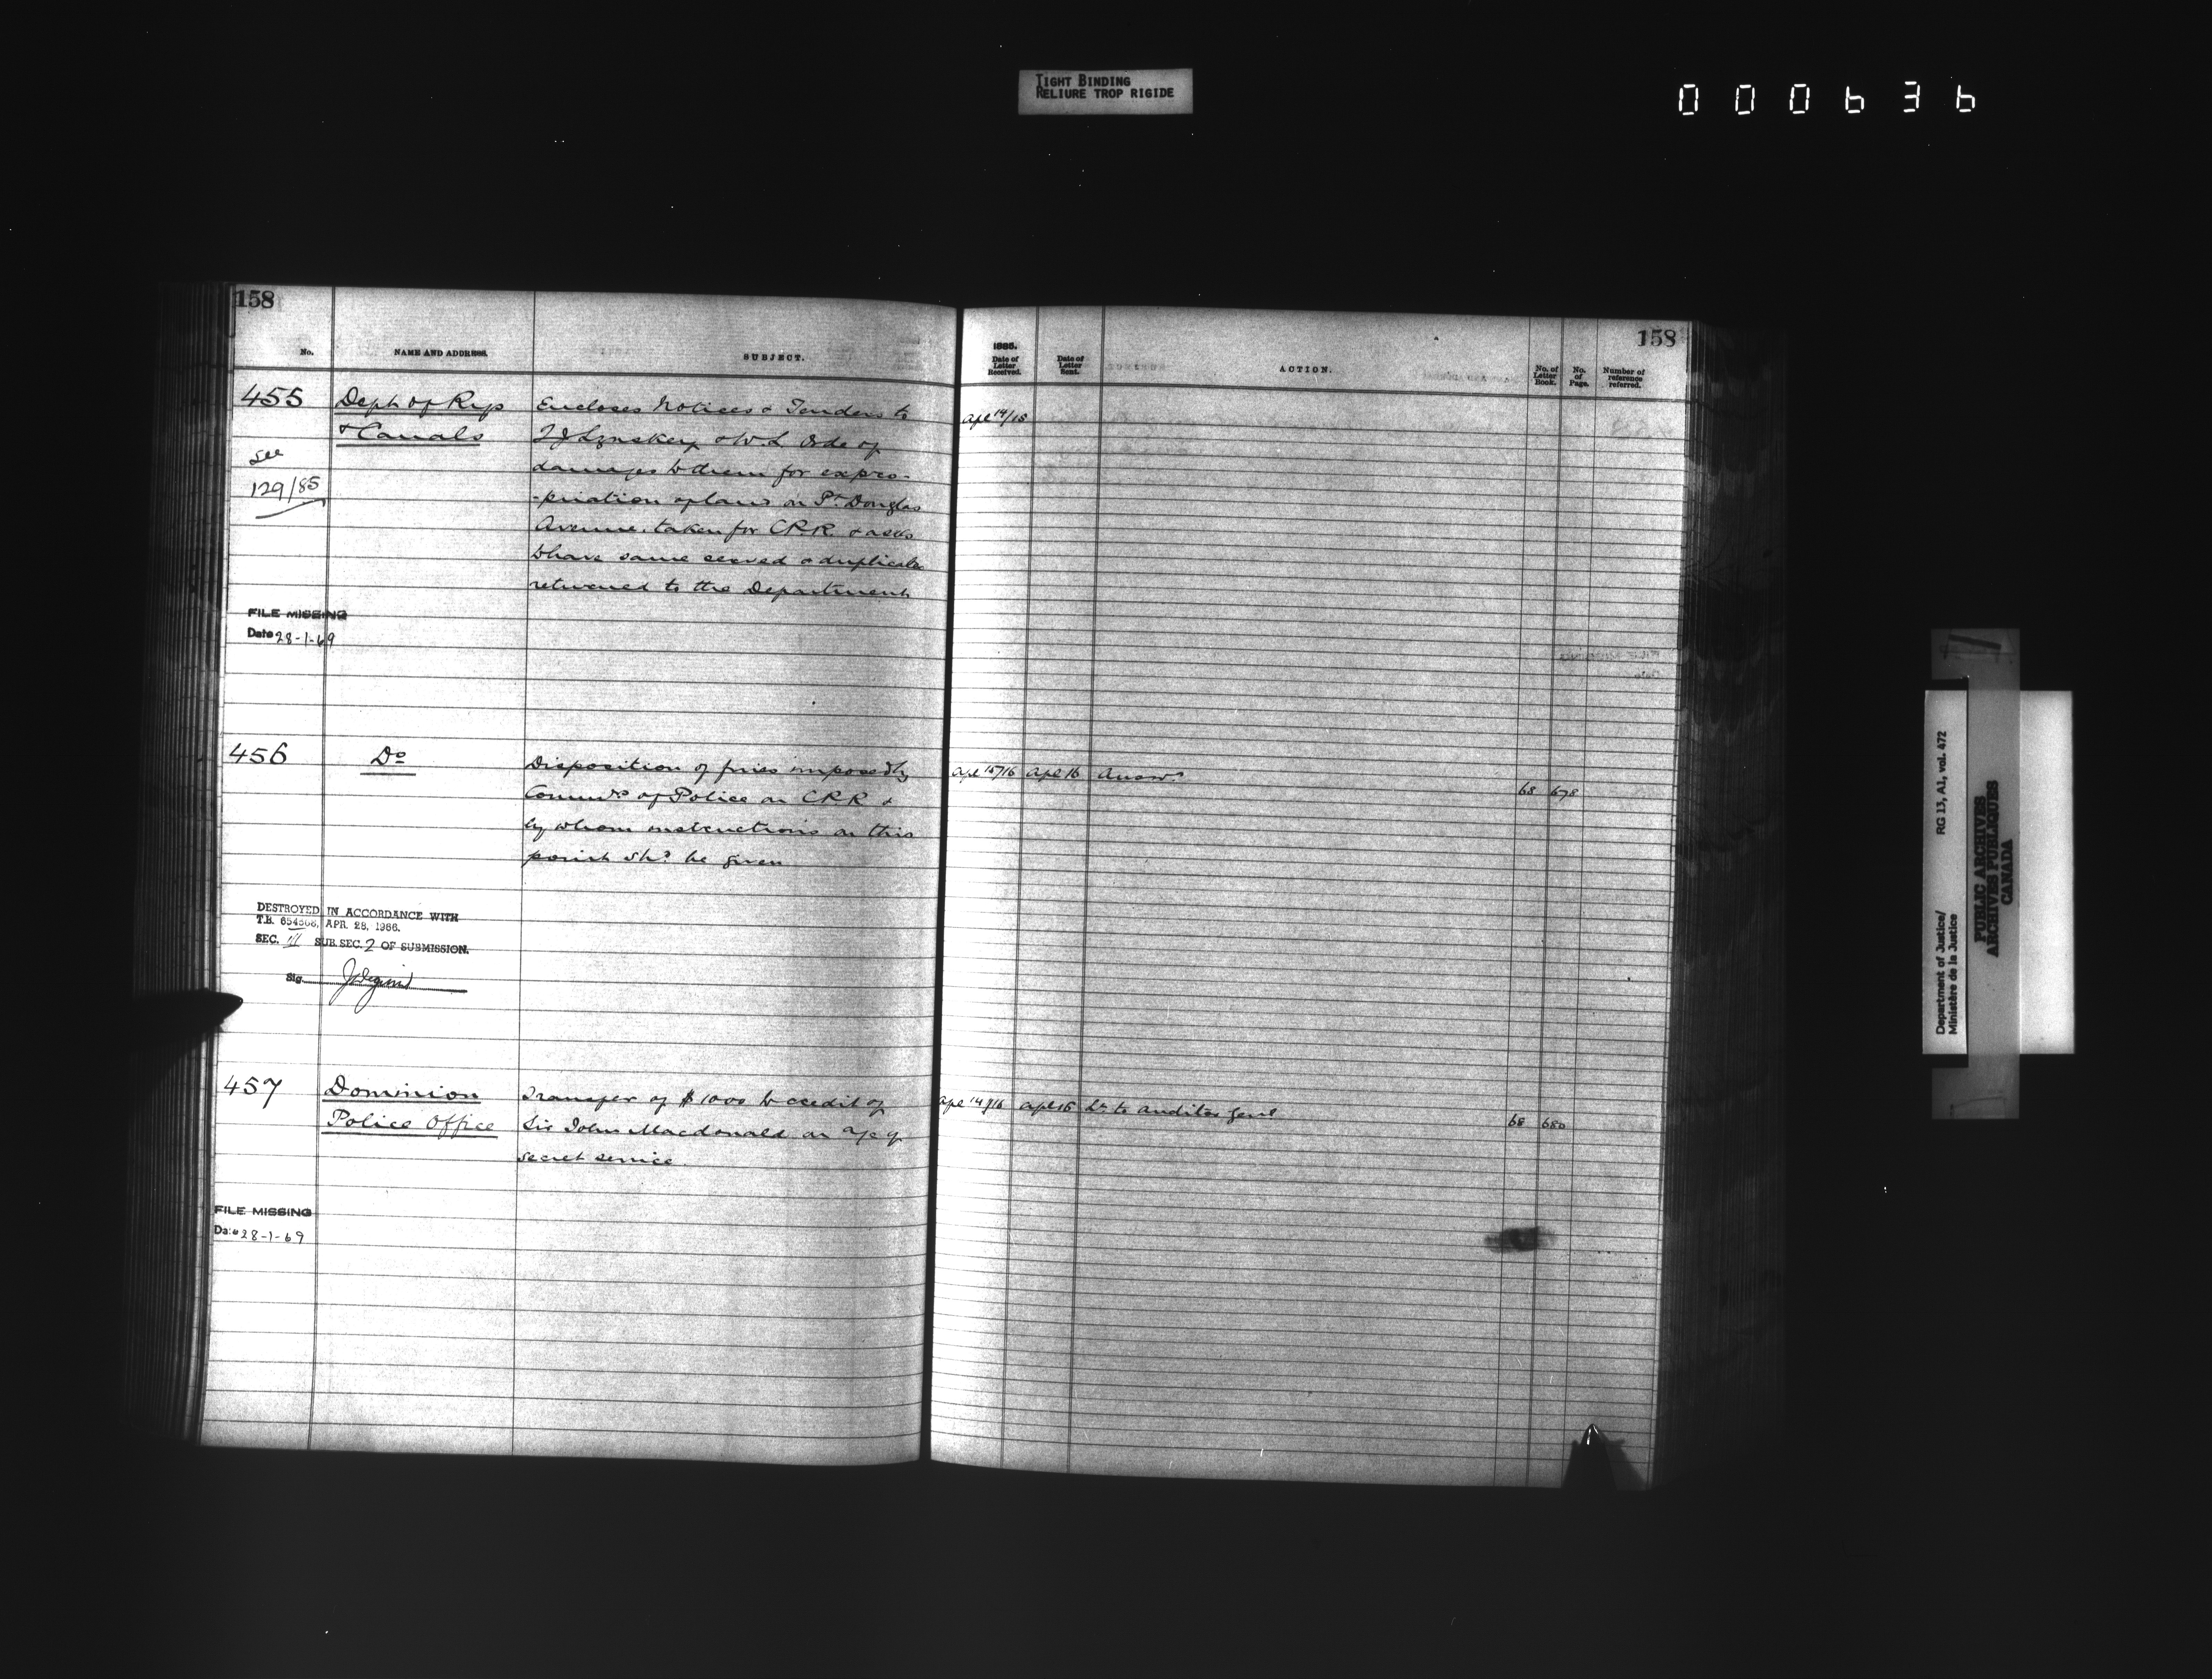 TIGHT BINDING
RELIURE TROP RIGIDE
000636
158
No. NAME AND ADDRESS. SUBJECT.
455 Dept of Rys Encloses Notices & Tenders to
& Canals T J Lynskey & W. L. Orde of
see damages to them for expro-
129/85 -priation of land on Pt. Douglas
Avenue. taken for C.P.R. & asks
to have same served & duplicate
returned to the Department.
FILE MISSING
Date 28-1-69
456 Do Disposition of fines imposed by
Commrs of Police on CPR &
by whom instructions on this
point shd. be given
DESTROYED IN ACCORDANCE WITH
T.B. APR. 28, 1966.
SEC. III SUB. SEC. 2 OF SUBMISSION.
Sig.
457 Dominion Transfer of $1000 to credit of
Police Office Sir John Macdonald on a/c of
secret service.
FILE MISSING
Date 28-1-69
158
1885.
Date of Letter Received. Date of Letter Sent. ACTION. No. of Letter Book. No. of Page. Number of reference referred.
Apl 14/15
Apl 15/16 Apl 16 Answd
68 678
Apl 14/16 Apl 16 Lr to Auditor Genl
68 680
Department of Justice/ RG 13, A1, vol. 472
Ministère de la Justice
PUBLIC ARCHIVES
ARCHIVES PUBLIQUES
CANADA